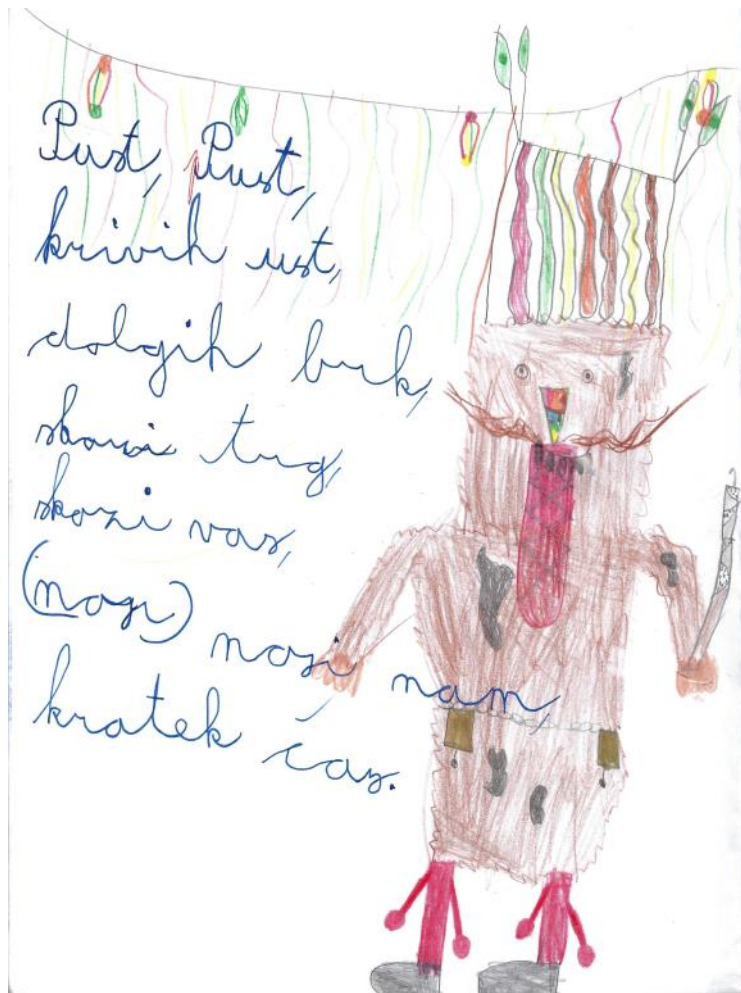 Pust, Pust,
krivih ust,
dolgih buk,
skozi tug,
skozi vas,
(nosi) nosi nam
kratek čas.